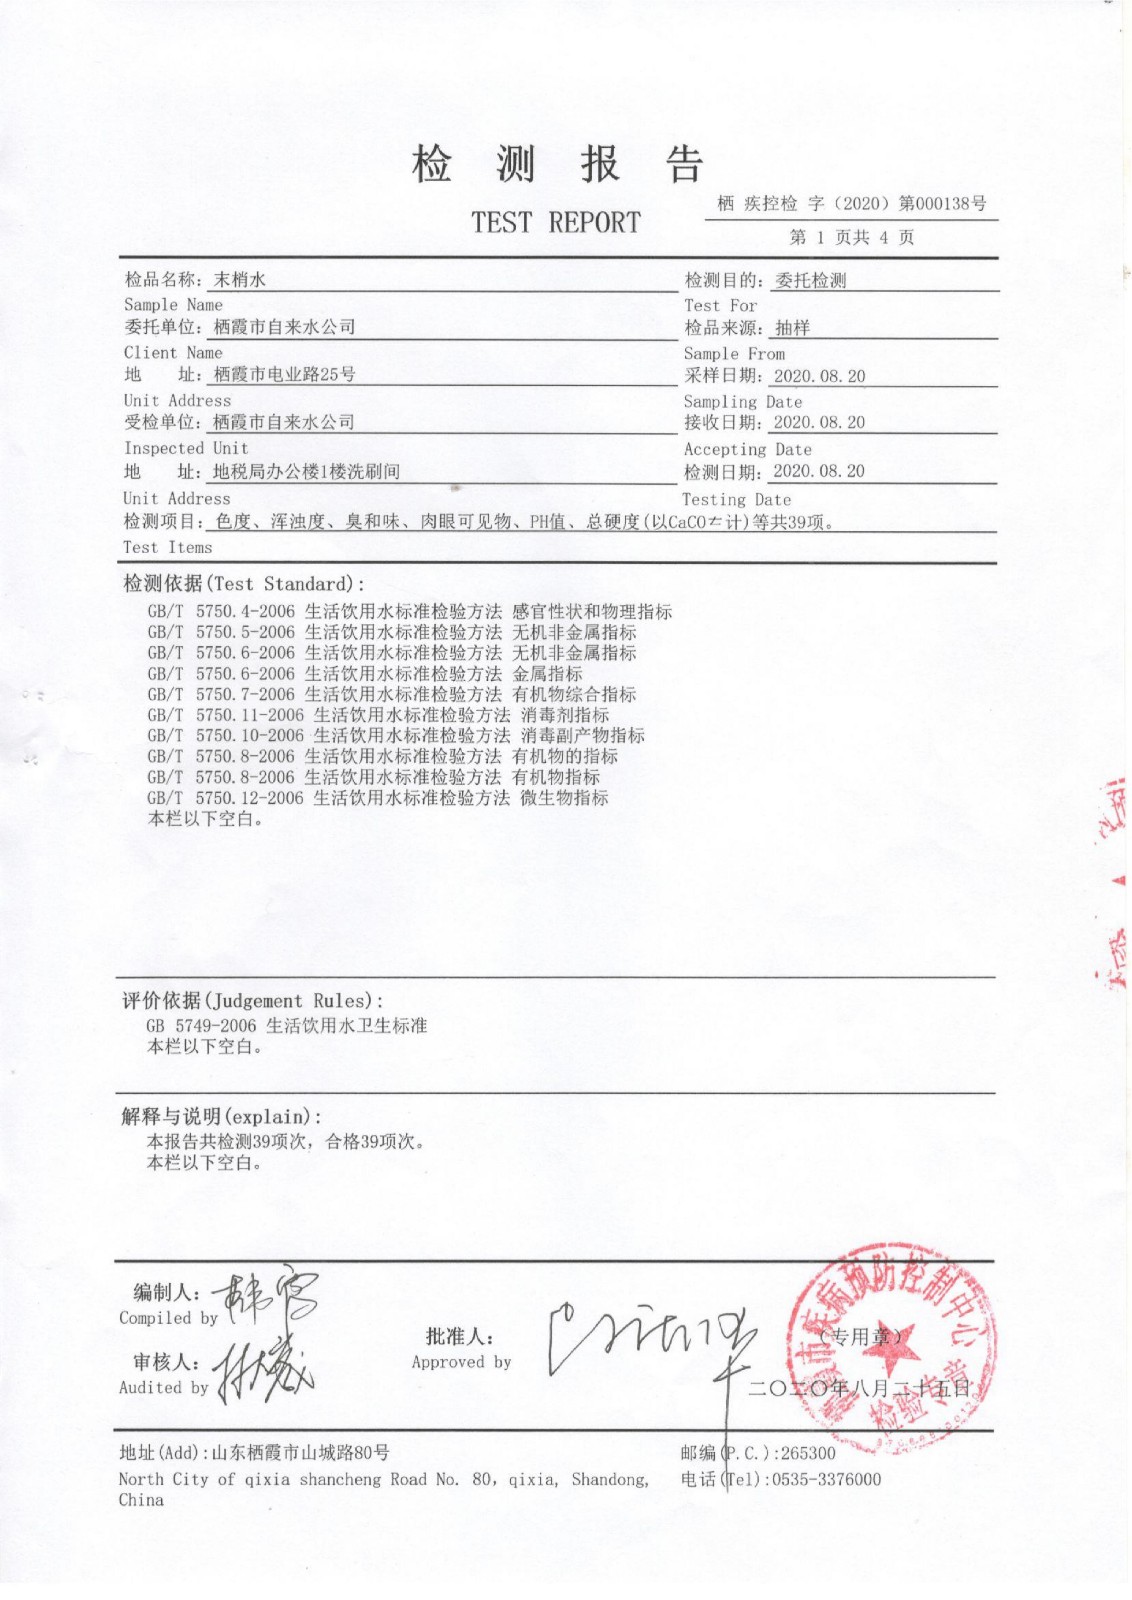 检 测 报 告
TEST REPORT
栖 疾控检 字（2020）第000138号
第 1 页共 4 页
检品名称：末梢水
检测目的：委托检测
Sample Name
Test For
委托单位：栖霞市自来水公司
检品来源：抽样
Client Name
Sample From
地 址：栖霞市电业路25号
采样日期：2020.08.20
Unit Address
Sampling Date
受检单位：栖霞市自来水公司
接收日期：2020.08.20
Inspected Unit
Accepting Date
地 址：地税局办公楼1楼洗刷间
检测日期：2020.08.20
Unit Address
Testing Date
检测项目：色度、浑浊度、臭和味、肉眼可见物、PH值、总硬度(以CaCO 计)等共39项。
Test Items
检测依据(Test Standard)：
GB/T 5750.4-2006 生活饮用水标准检验方法 感官性状和物理指标
GB/T 5750.5-2006 生活饮用水标准检验方法 无机非金属指标
GB/T 5750.6-2006 生活饮用水标准检验方法 无机非金属指标
GB/T 5750.6-2006 生活饮用水标准检验方法 金属指标
GB/T 5750.7-2006 生活饮用水标准检验方法 有机物综合指标
GB/T 5750.11-2006 生活饮用水标准检验方法 消毒剂指标
GB/T 5750.10-2006 生活饮用水标准检验方法 消毒副产物指标
GB/T 5750.8-2006 生活饮用水标准检验方法 有机物的指标
GB/T 5750.8-2006 生活饮用水标准检验方法 有机物指标
GB/T 5750.12-2006 生活饮用水标准检验方法 微生物指标
本栏以下空白。
评价依据(Judgement Rules)：
GB 5749-2006 生活饮用水卫生标准
本栏以下空白。
解释与说明(explain)：
本报告共检测39项次，合格39项次。
本栏以下空白。
编制人：
Compiled by
审核人：
Audited by
批准人：
Approved by
霞市疾病预防控制中心
（专用章）
检验专用章
二〇二〇年八月二十五日
地址(Add):山东栖霞市山城路80号
邮编(P.C.):265300
North City of qixia shancheng Road No. 80, qixia, Shandong,
China
电话(Tel):0535-3376000